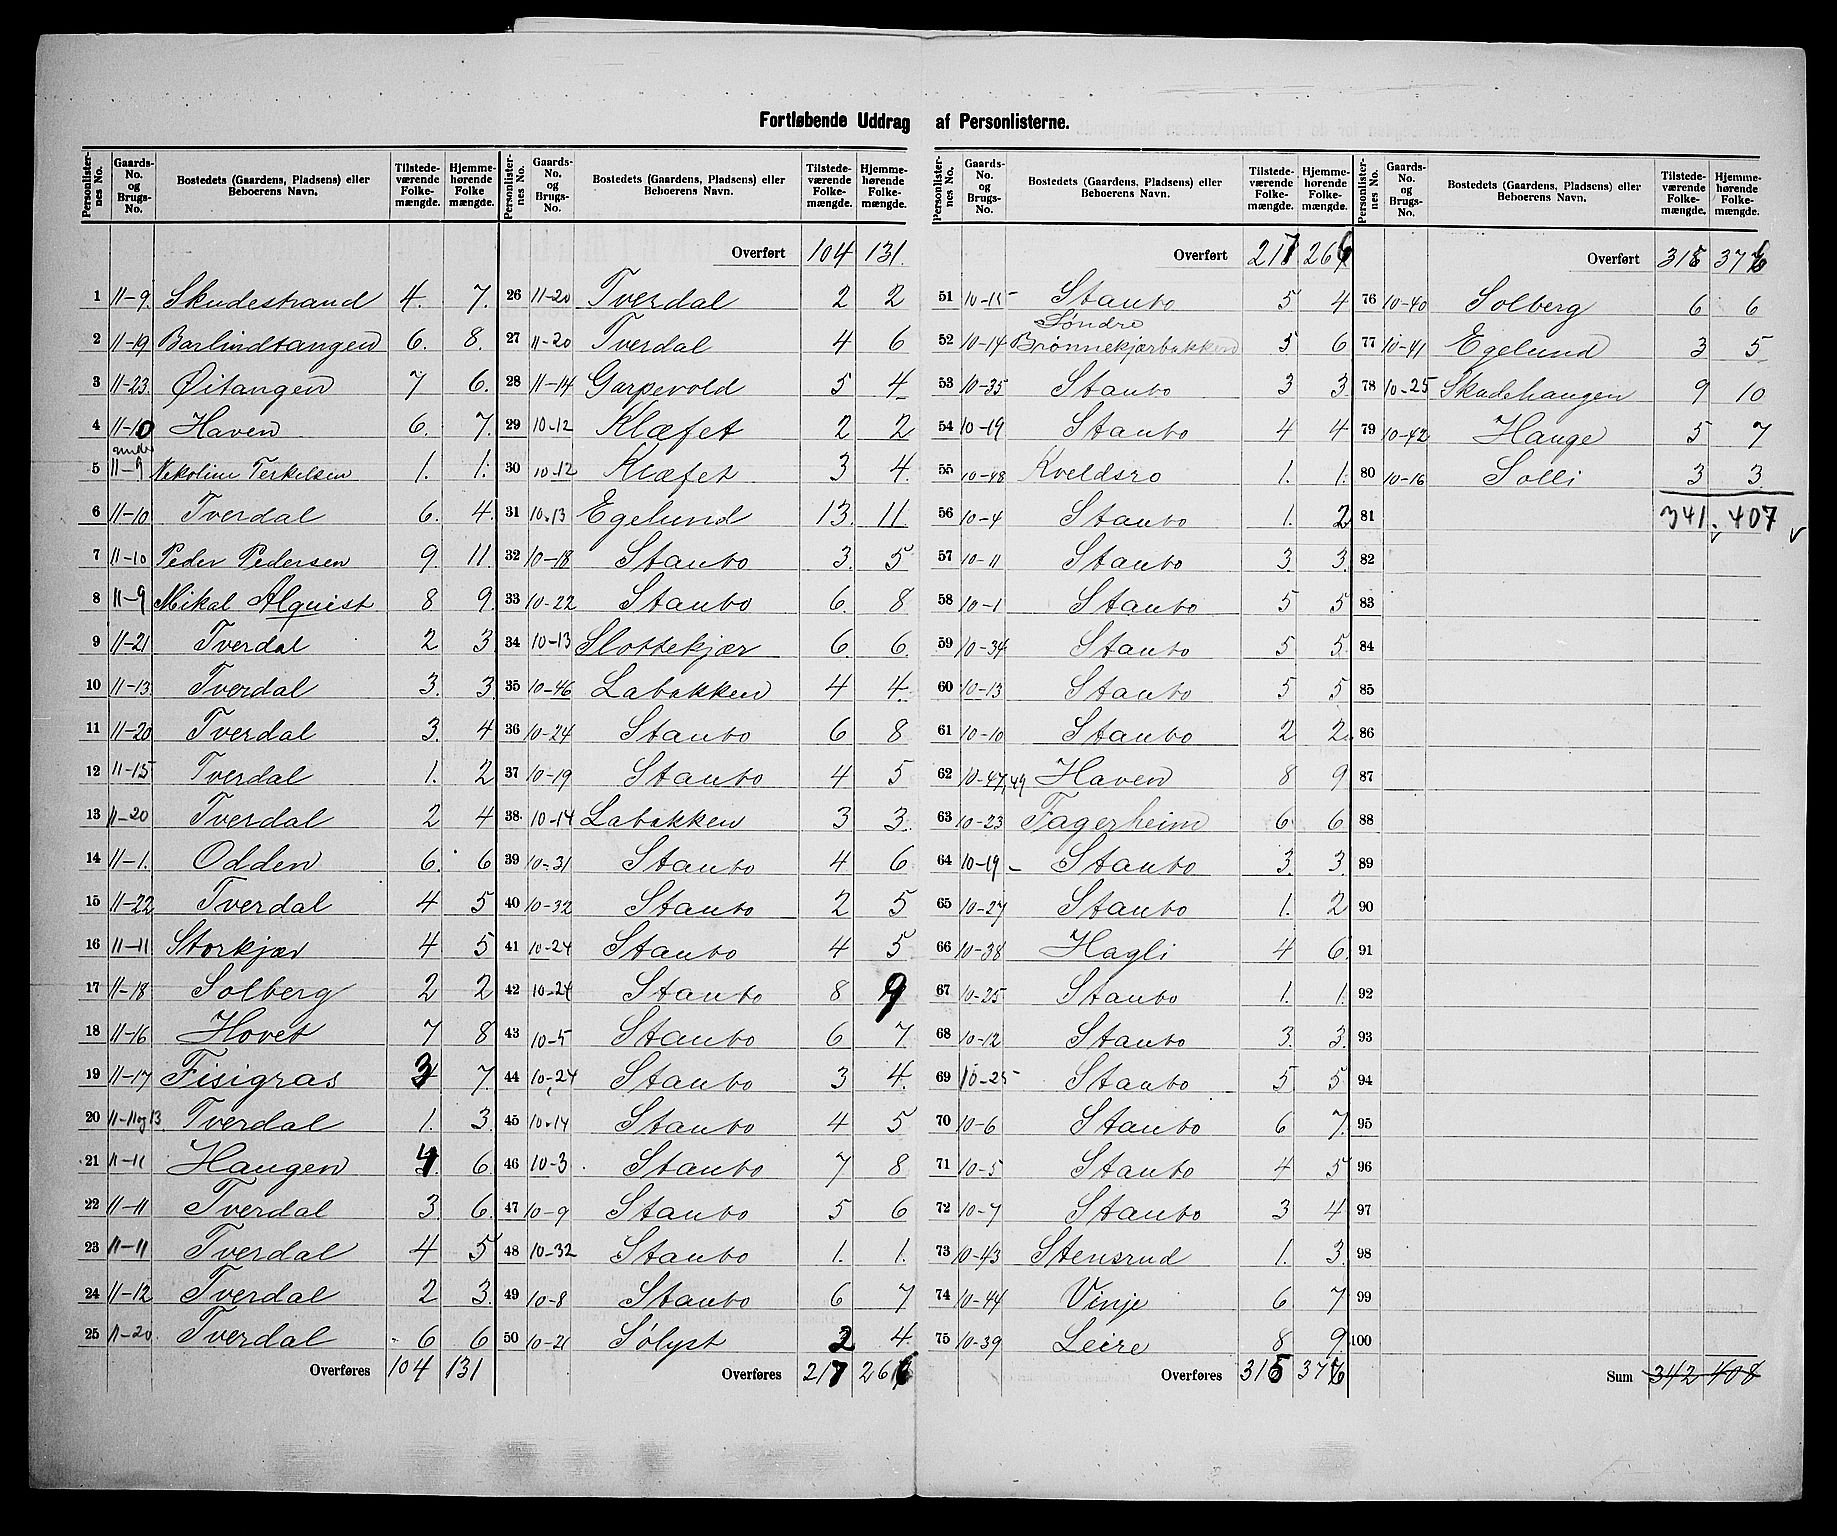 Fortløbende Uddrag af Personlisterne.
Personlister-nes No. Gaards-No. og Brugs-No. Bostedets (Gaardens, Pladsens) eller Beboerens Navn. Tilstede-værende Folke-mængde. Hjemme-hørende Folke mængde.
1 11-9. Skudestrand 4. 7.
2 11-19 Barlindtangen 6. 8.
3 11-23. Øitangen 7 6.
4 11-10 Haven 6. 7.
5 under 11-9 Nekoline Terkelsen 1. 1.
6 11-10 Tverdal 6. 4.
7 11-10 Peder Pedersen 9. 11.
8 11-9 Mikal Alquist 8 9.
9 11-21 Tverdal 2 3
10 11-13 Tverdal 3. 3
11 11-20 Tverdal 3. 4
12 11-15 Tverdal 1. 2
13 11-20 Tverdal 2 4
14 11-1. Odden 6. 6
15 11-22 Tverdal 4 5
16 11-11 Storkjær 4 5
17 11-18 Solberg 2 2
18 11-16 Hovet 7 8
19 11-17 Fisigras 3 7.
20 11-11 og 13 Tverdal 1. 3.
21 11-11 Haugen 4 6.
22 11-11 Tverdal 3. 6.
23 11-11 Tverdal 4 5
24 11-12 Tverdal 2 3.
25 11-20. Tverdal 6 6
Overføres 104 131
Personlister-nes No. Gaards-No. og Brugs-No. Bostedets (Gaardens, Pladsens) eller Beboerens Navn. Tilstede-værende Folke-mængde. Hjemme-hørende Folke-mængde.
Overført 104 131.
26 11-20 Tverdal 2 2
27 11-20 Tverdal 4 6
28 11-14 Garpevold 5 4
29 10-12 Klæfet 2 2
30 10-12 Klæfet 3 4.
31 10.13 Egelund 13. 11
32 10-18 Staubo 3. 5
33 10-22 Staubo 6. 8
34 10-13 Slottekjær 6. 6.
35 10-46 Labakken 4 4.
36 10-24 Staubo 6 8
37 10-19 Staubo 4 5
38 10-14 Labakken 3 3.
39 10-31 Staubo 4 6
40 10-32 Staubo 2 5
41 10-24 Staubo 4 5
42 10-24 Staubo 8 9
43 10-5 Staubo 6 7
44 10-24 Staubo 3 4.
45 10-14 Staubo 4 5
46 10-3 Staubo 7 8
47 10-9 Staubo 5 6
48 10-32 Staubo 1. 1.
49 10-8 Staubo 6 7
50 10-21 Sølyst 2 4.
Overføres 217
Personlister-nes No. Gaards-No. og Brugs-No. Bostedets (Gaardens, Pladsens) eller Beboerens Navn. Tilstede-værende Folke-mængde. Hjemme-hørende Folke-mængde.
Overført 217 266
51 10-15 Staubo 5 4
52 10-14 Søndre Brønnekjærbakken 5 6
53 10-35 Staubo 3 3
54 10-19 Staubo 4 4
55 10-48 Kveldsro 1. 1.
56 10-4 Staubo 1. 2
57 10-11 Staubo 3. 3.
58 10-1 Staubo 5 5
59 10-34 Staubo 5 5.
60 10-13 Staubo 5 5
61 10-10 Staubo 2 2
62 10-47, 49 Haven 8 9
63 10-23 Fagerheim 6 6
64 10-19 Staubo 3. 3.
65 10-27 Staubo 1. 2
66 10-38 Hagli 4 6.
67 10-25 Staubo 1. 1.
68 10-12 Staubo 3. 3.
69 10-25 Staubo 5 5
70 10-6 Staubo 6 7.
71 10-5 Staubo 4 5
72 10-7 Staubo 3 4
73 10-43 Stensrud 1. 3.
74 10-44 Vinje 6 7
75 10-39 Leire 8 9
Overføres 315 376
Personlister-nes No. Gaards-No. og Brugs-No. Bostedets (Gaardens, Pladsens) eller Beboerens Navn. Tilstede-værende Folke-mængde. Hjemme-hørende Folke-mængde.
Overført 315 376
76 10-40 Solberg 6 6
77 10-41 Egelund 3 5
78 10-25 Skadehaugen 9 10
79 10-42 Hauge 5 7
80 10-16 Solli 3 3
81 341. 407
82
83
84
85
86
87
88
89
90
91
92
93
94
95
96
97
98
99
100
Sum 342 408